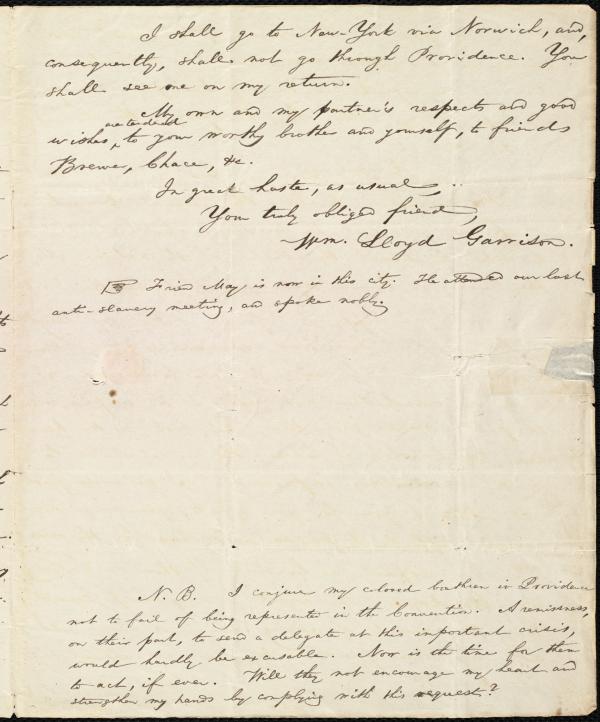 I shall go to New-York via Norwich, and,
consequently, shall not go through Providence. You
shall see me on my return.
My own and my partner's respects and good
are tendered
wishes, to your worthy brother and yourself, to friends
Brewer, Chace, &c.
In great haste, as usual,
Your truly obliged friend,
Wm. Lloyd Garrison.
☞ Friend May is now in this city. He attended our last
anti-slavery meeting, and spoke nobly.
N. B. I conjure my colored brethren in Providence
not to fail of being represented in the Convention. A remissness,
on their part, to send a delegate at this important crisis,
would hardly be excusable. Now is the time for them
to act, if ever. Will they not encourage my heart and
strengthen my hands by complying with this request?